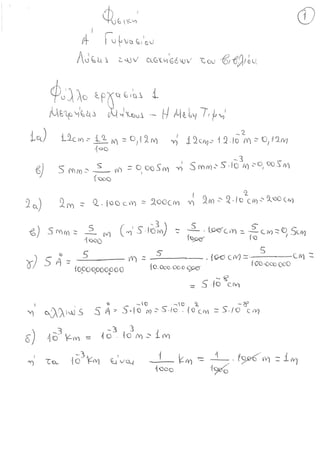 Φυσική
①
Α' Γυμνασίου
Λύσεις των ασκήσεων του βιβλίου
Φύλλο εργασίας 1
Μετρήσεις Μήκους - Η Μέση Τιμή
1α) 12cm = 12/100 m = 0,12m ή 12cm = 12·10⁻² m = 0,12m
β) 5mm = 5/1000 m = 0,005m ή 5mm = 5·10⁻³ m = 0,005m
2α) 2m = 2·100cm = 200cm ή 2m = 2·10² cm = 200cm
β) 5mm = 5/1000 m (ή 5·10⁻³) = 5/1000 ·100cm = 5/10 cm = 0,5cm
γ) 5Å = 5/10.000.000.000 m = 5/10.000.000.000 ·100cm = 5/100.000.000 cm =
= 5·10⁻⁸ cm
ή αλλιώς 5Å = 5·10⁻¹⁰ m = 5·10⁻¹⁰·10² cm = 5·10⁻⁸ cm
δ) 10⁻³ Km = 10⁻³·10³ m = 1m
ή τα 10⁻³ Km είναι 1/1000 Km = 1/1000 ·1000 m = 1m